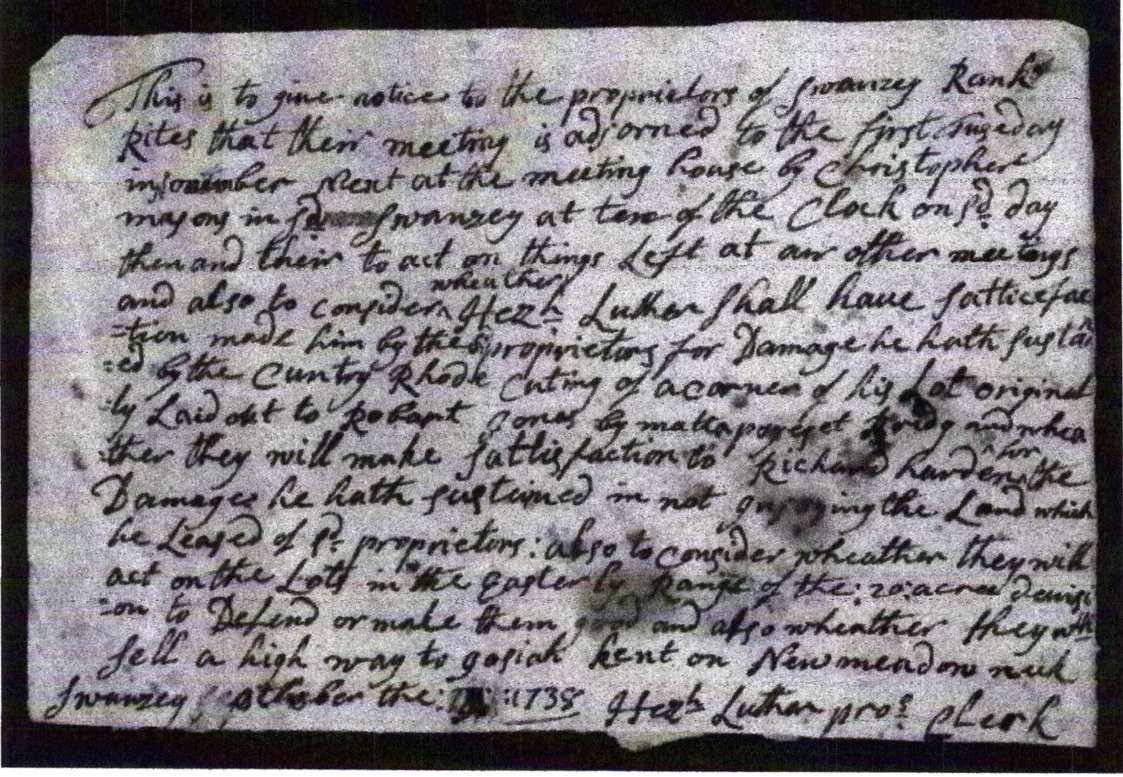 This is to give notice to the proprietors of Swanzey Rank
Rites that their meeting is adjorned to the first Tuseday
in november Next at the meeting house by Christopher
masons in Swanzey at ten of the Clock on sd. day
then and their to act on things Left at aur other meetings
wheather
and also to consider Hezh Luther Shall haue satticefac
=tion made him by the proprietors for Damage he hath sustai
=ed by the Cuntry Rhode Cuting of a corner of his Lot original
=ly Laid out to Robert Jones by mattapoyset and whea
for
=ther they will make sattisfaction to Richard harden the
Damages he hath sustained in not the Land which
he Leased of sd. proprietors: also to consider wheather they will
act on the Lots in the Easterly Range of the :20: acree deuisi
=on to Defend or make them good and also wheather they will
sell a high way to Josiah kent on New meadow neck
Swanzey the: :1738 Hezh Luther pros Clerk